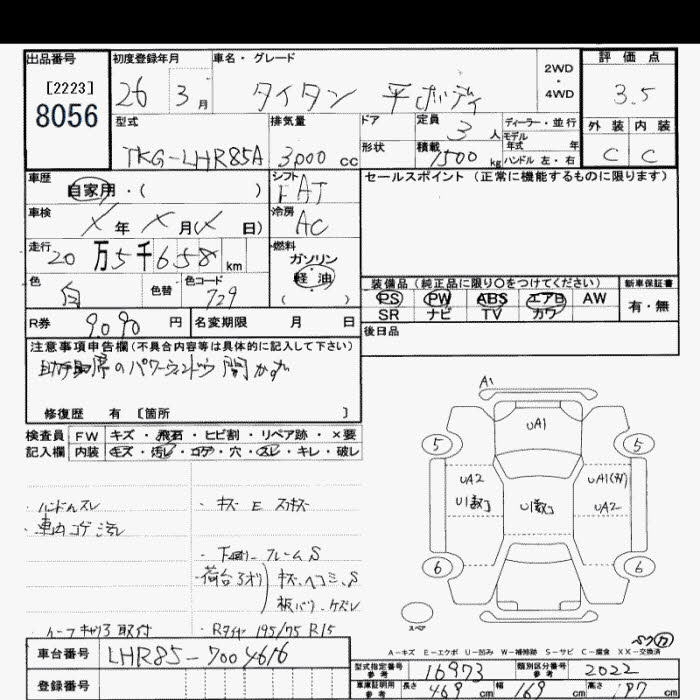 出品番号 初度登録年月 車名・グレード 2WD・4WD 評価点
[2223]
8056
26 3月 タイタン 平ボディ 3.5
型式 排気量 ドア 定員 3人 ディーラー・並行 外装 内装
モデル年式 年
TKG-LHR85A 3000cc 形状 積載 1500kg ハンドル 左・右 C C
車歴 シフト セールスポイント(正常に機能するものに限ります)
自家用・( ) FAT
車検 冷房
X年X月(X日) AC
走行 燃料
20万5千658km ガソリン
軽油
( )
色 色替 色コード
白 729
装備品(純正品に限り○をつけてください) 新車保証書
PS PW ABS エアB AW 有・無
SR ナビ TV カワ
R券 9090円 名変期限 月 日 後日品
注意事項申告欄(不具合内容等は具体的に記入して下さい)
助手席のパワーウィンドウ 開かず
修復歴 有 [箇所 ]
検査員 FW キズ・飛石・ヒビ割・リペア跡・×要
記入欄 内装 キズ・汚レ・コゲ・穴・スレ・キレ・破レ
・ハンドルスレ ・キズ E
・車内コゲ 汚レ
・下回り フレームS
・荷台3オリ キズ、ヘコミ、S
取付 ・Rタイヤ 195/75 R15
A1
UA1
5 5
UA2 UA1
U1 U1 UA2
6 6
スペア
A-キズ E-エクボ U-凹み W-補修跡 S-サビ C-腐食 XX-交換済
車台番号 LHR85-7004616
型式指定番号 参考 16973 類別区分番号 参考 2022
登録番号 車庫証明用 参考 長さ 469cm 幅 169cm 高さ 197cm